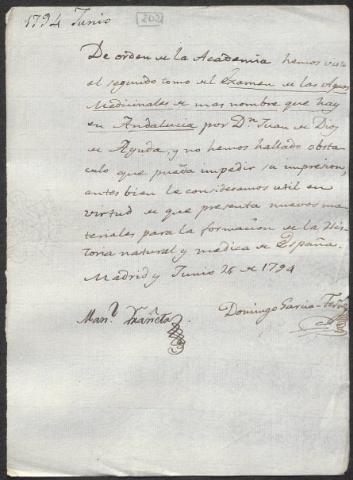 1794 Junio
202
De orden de la Academia hemos visto
el segundo tomo del Examen de las Aguas
Medicinales de mas nombre que hay
en Andalucia por Dn Juan de Dios
de Ayuda, y no hemos hallado obsta-
culo que pueda impedir su impresion,
antes bien le consideramos util en
virtud de que presenta nuevos ma-
teriales para la formacion de la His-
toria natural y medica de España.
Madrid y Junio 26 de 1794
Domingo Garcia
Manl.